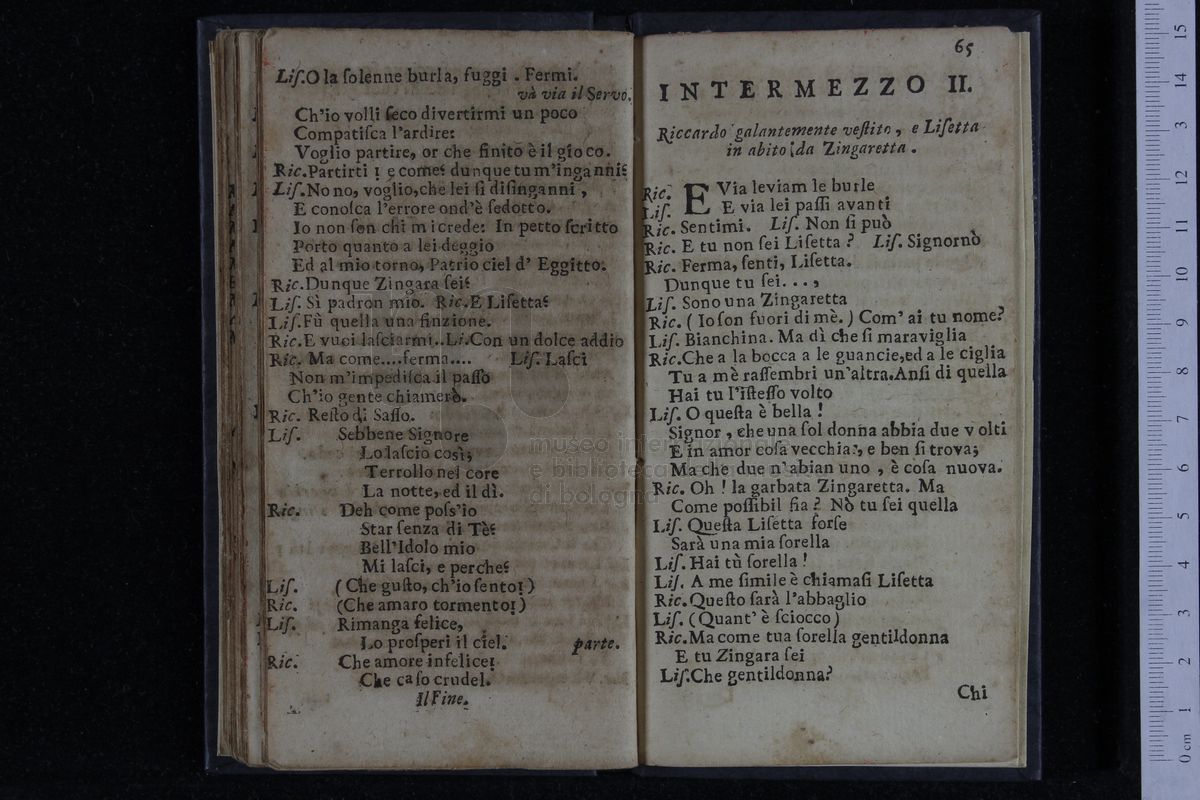 Liſ.O la ſolenne burla, fuggi . Fermi.
và via il Servo.
Ch'io volli ſeco divertirmi un poco
Compatiſca l'ardire:
Voglio partire, or che finito è il gioco.
Ric.Partirti ! e come? dunque tu m'inganni?
Liſ.No no, voglio,che lei ſi diſinganni ,
E conoſca l'errore ond'è ſedotto.
Io non ſon chi mi crede: In petto ſcritto
Porto quanto a lei deggio
Ed al mio torno, Patrio ciel d' Eggitto.
Ric.Dunque Zingara ſei?
Liſ. Sì padron mio. Ric.E Liſetta?
Liſ.Fù quella una finzione.
Ric.E vuoi laſciarmi..Li.Con un dolce addio
Ric. Ma come....ferma.... Liſ. Laſci
Non m'impediſca il paſſo
Ch'io gente chiamerò.
Ric. Reſto di Saſſo.
Liſ. Sebbene Signore
Lo laſcio così;
Terrollo nel core
La notte, ed il dì.
Ric. Deh come poſs'io
Star ſenza di Tè?
Bell'Idolo mio
Mi laſci, e perche?
Liſ. (Che guſto, ch'io ſento!)
Ric. (Che amaro tormento!)
Liſ. Rimanga felice,
Lo proſperi il ciel. parte.
Ric. Che amore infelice!
Che caſo crudel.
Il Fine.
65
INTERMEZZO II.
Riccardo galantemente veſtito, e Liſetta
in abito da Zingaretta .
Ric. E Via leviam le burle
Liſ. E via lei paſſi avanti
Ric. Sentimi. Liſ. Non ſi può
Ric. E tu non ſei Liſetta ? Liſ. Signornò
Ric. Ferma, ſenti, Liſetta.
Dunque tu ſei. . . ,
Liſ. Sono una Zingaretta
Ric. ( Io ſon fuori di mè. ) Com' ai tu nome?
Liſ. Bianchina. Ma dì che ſi maraviglia
Ric.Che a la bocca a le guancie,ed a le ciglia
Tu a mè raſſembri un'altra.Anſi di quella
Hai tu l'iſteſſo volto
Liſ. O queſta è bella !
Signor , che una ſol donna abbia due volti
E in amor coſa vecchia:, e ben ſi trova;
Ma che due n'abian uno , è coſa nuova.
Ric. Oh ! la garbata Zingaretta. Ma
Come poſſibil fia ? Nò tu ſei quella
Liſ. Queſta Liſetta forſe
Sarà una mia ſorella
Liſ. Hai tù ſorella !
Liſ. A me ſimile è chiamaſi Liſetta
Ric.Queſto ſarà l'abbaglio
Liſ. (Quant' è ſciocco)
Ric.Ma come tua ſorella gentildonna
E tu Zingara ſei
Liſ.Che gentildonna?
Chi
museo internazionale
e biblioteca
di bologna
15
14
13
12
11
10
9
8
7
6
5
4
3
2
1
0 cm